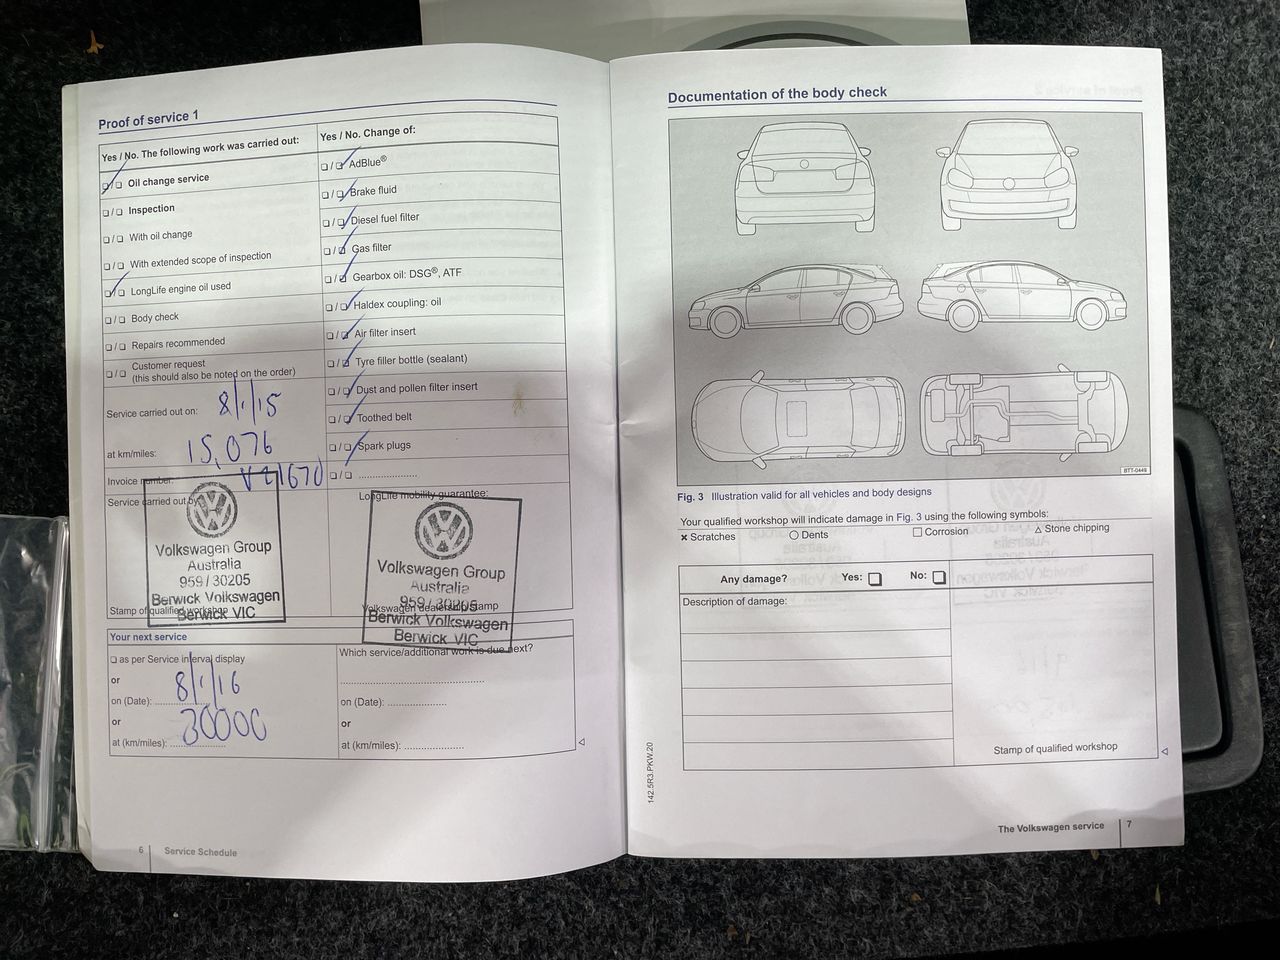 Proof of service 1
Yes / No. The following work was carried out:
❑ / ❑ Oil change service
❑ / ❑ Inspection
❑ / ❑ With oil change
❑ / ❑ With extended scope of inspection
❑ / ❑ LongLife engine oil used
❑ / ❑ Body check
❑ / ❑ Repairs recommended
❑ / ❑ Customer request
(this should also be noted on the order)
Service carried out on: 8/1/15
at km/miles: 15,076
Invoice number: V21670
Service carried out by:
Volkswagen Group
Australia
959 / 30205
Berwick Volkswagen
Berwick VIC
Stamp of qualified workshop
Yes / No. Change of:
❑ / ❑ AdBlue®
❑ / ❑ Brake fluid
❑ / ❑ Diesel fuel filter
❑ / ❑ Gas filter
❑ / ❑ Gearbox oil: DSG®, ATF
❑ / ❑ Haldex coupling: oil
❑ / ❑ Air filter insert
❑ / ❑ Tyre filler bottle (sealant)
❑ / ❑ Dust and pollen filter insert
❑ / ❑ Toothed belt
❑ / ❑ Spark plugs
❑ / ❑ ....................
LongLife mobility guarantee:
Volkswagen Group
Australia
959 / 30205
Berwick Volkswagen
Berwick VIC
Volkswagen dealership stamp
Your next service
❑ as per Service interval display
or
on (Date): 8/1/16
or
at (km/miles): 30000
Which service/additional work is due next?
on (Date): ....................
or
at (km/miles): ....................
6 Service Schedule
Documentation of the body check
BTT-0449
Fig. 3 Illustration valid for all vehicles and body designs
Your qualified workshop will indicate damage in Fig. 3 using the following symbols:
× Scratches ○ Dents □ Corrosion △ Stone chipping
Any damage? Yes: ❑ No: ❑
Description of damage:
Stamp of qualified workshop
142.5R3.PKW.20
The Volkswagen service 7